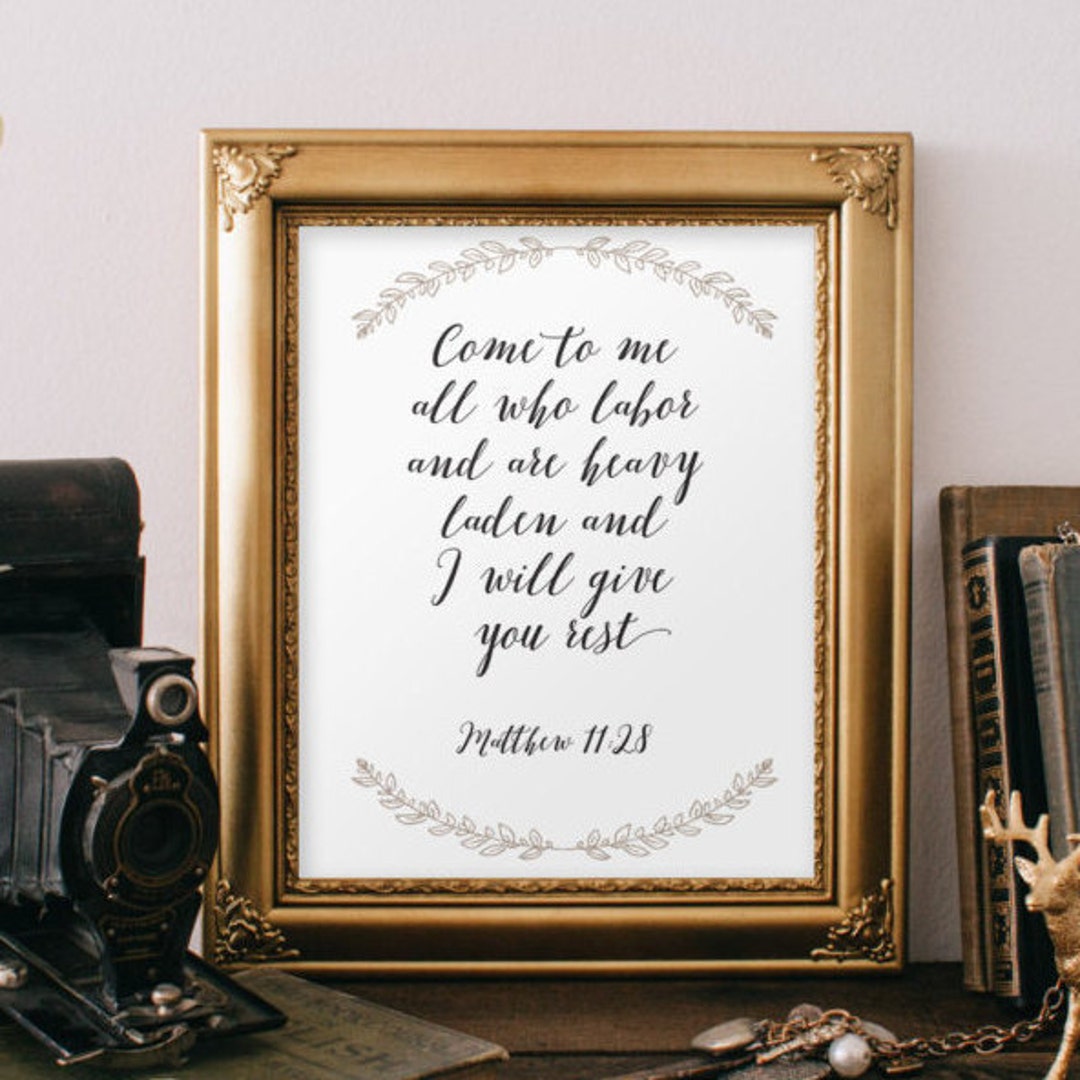 Come to me
all who labor
and are heavy
laden and
I will give
you rest
Matthew 11:28